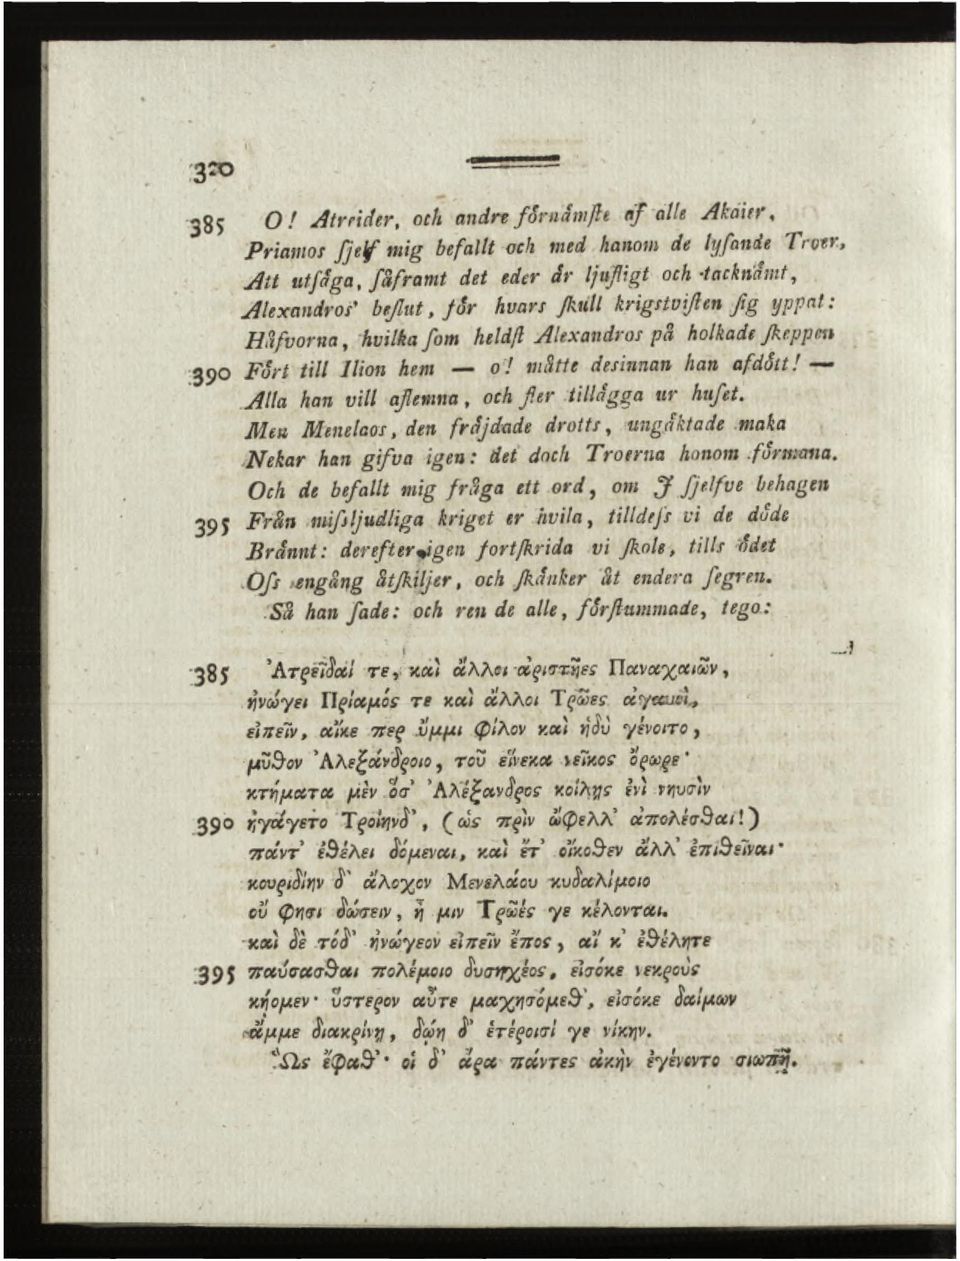 320
385 O! Atreider, och andre förnämſte af alle Akäier,
Priamos ſjelf mig befallt och med hanom de lyſande Troer,
Att utſäga, ſåframt det eder är ljufligt och tacknämt,
Alexandros' beſlut, för hvars ſkull krigstviſten ſig yppat:
Håfvorna, hvilka ſom heldſt Alexandros på holkade ſkeppen
390 Fört till Ilion hem — o! måtte desinnan han afdött! —
Alla han vill aflemna, och fler tillägga ur huſet.
Men Menelaos, den fräjdade drotts, ungäktade maka
Nekar han gifva igen: det doch Troerna honom förmana.
Och de befallt mig fråga ett ord, om J ſjelfve behagen
395 Från miſsljudliga kriget er hvila, tilldeſs vi de döde
Brännt: derefter igen fortſkrida vi ſkole, tills ödet
Oſs engång åtſkiljer, och ſkänker åt endera ſegren.
Så han ſade: och ren de alle, förſtummade, tego:
385 Ἀτρεῖδαί τε, καὶ ἄλλοι ἀριστῆες Παναχαιῶν,
ἠνώγει Πρίαμός τε καὶ ἄλλοι Τρῶες ἀγαυοὶ,
εἰπεῖν, αἴκε περ ὔμμι φίλον καὶ ἡδὺ γένοιτο,
μῦθον Ἀλεξάνδροιο, τοῦ εἵνεκα νεῖκος ὄρωρε·
κτήματα μὲν ὅσ' Ἀλέξανδρος κοίλῃς ἐνὶ νηυσὶν
390 ἠγάγετο Τροίηνδ', (ὡς πρὶν ὤφελλ' ἀπολέσθαι!)
πάντ' ἐθέλει δόμεναι, καὶ ἔτ' οἴκοθεν ἄλλ' ἐπιθεῖναι·
κουριδίην δ' ἄλοχον Μενελάου κυδαλίμοιο
οὔ φησι δώσειν, ἦ μιν Τρῶές γε κέλονται.
καὶ δὲ τόδ' ἠνώγεον εἰπεῖν ἔπος, αἴ κ' ἐθέλητε
395 παύσασθαι πολέμοιο δυσηχέος, εἰσόκε νεκροὺς
κήομεν· ὕστερον αὖτε μαχησόμεθ', εἰσόκε δαίμων
ἄμμε διακρίνῃ, δώῃ δ' ἑτέροισί γε νίκην.
Ὣς ἔφαθ'· οἱ δ' ἄρα πάντες ἀκὴν ἐγένοντο σιωπῇ.